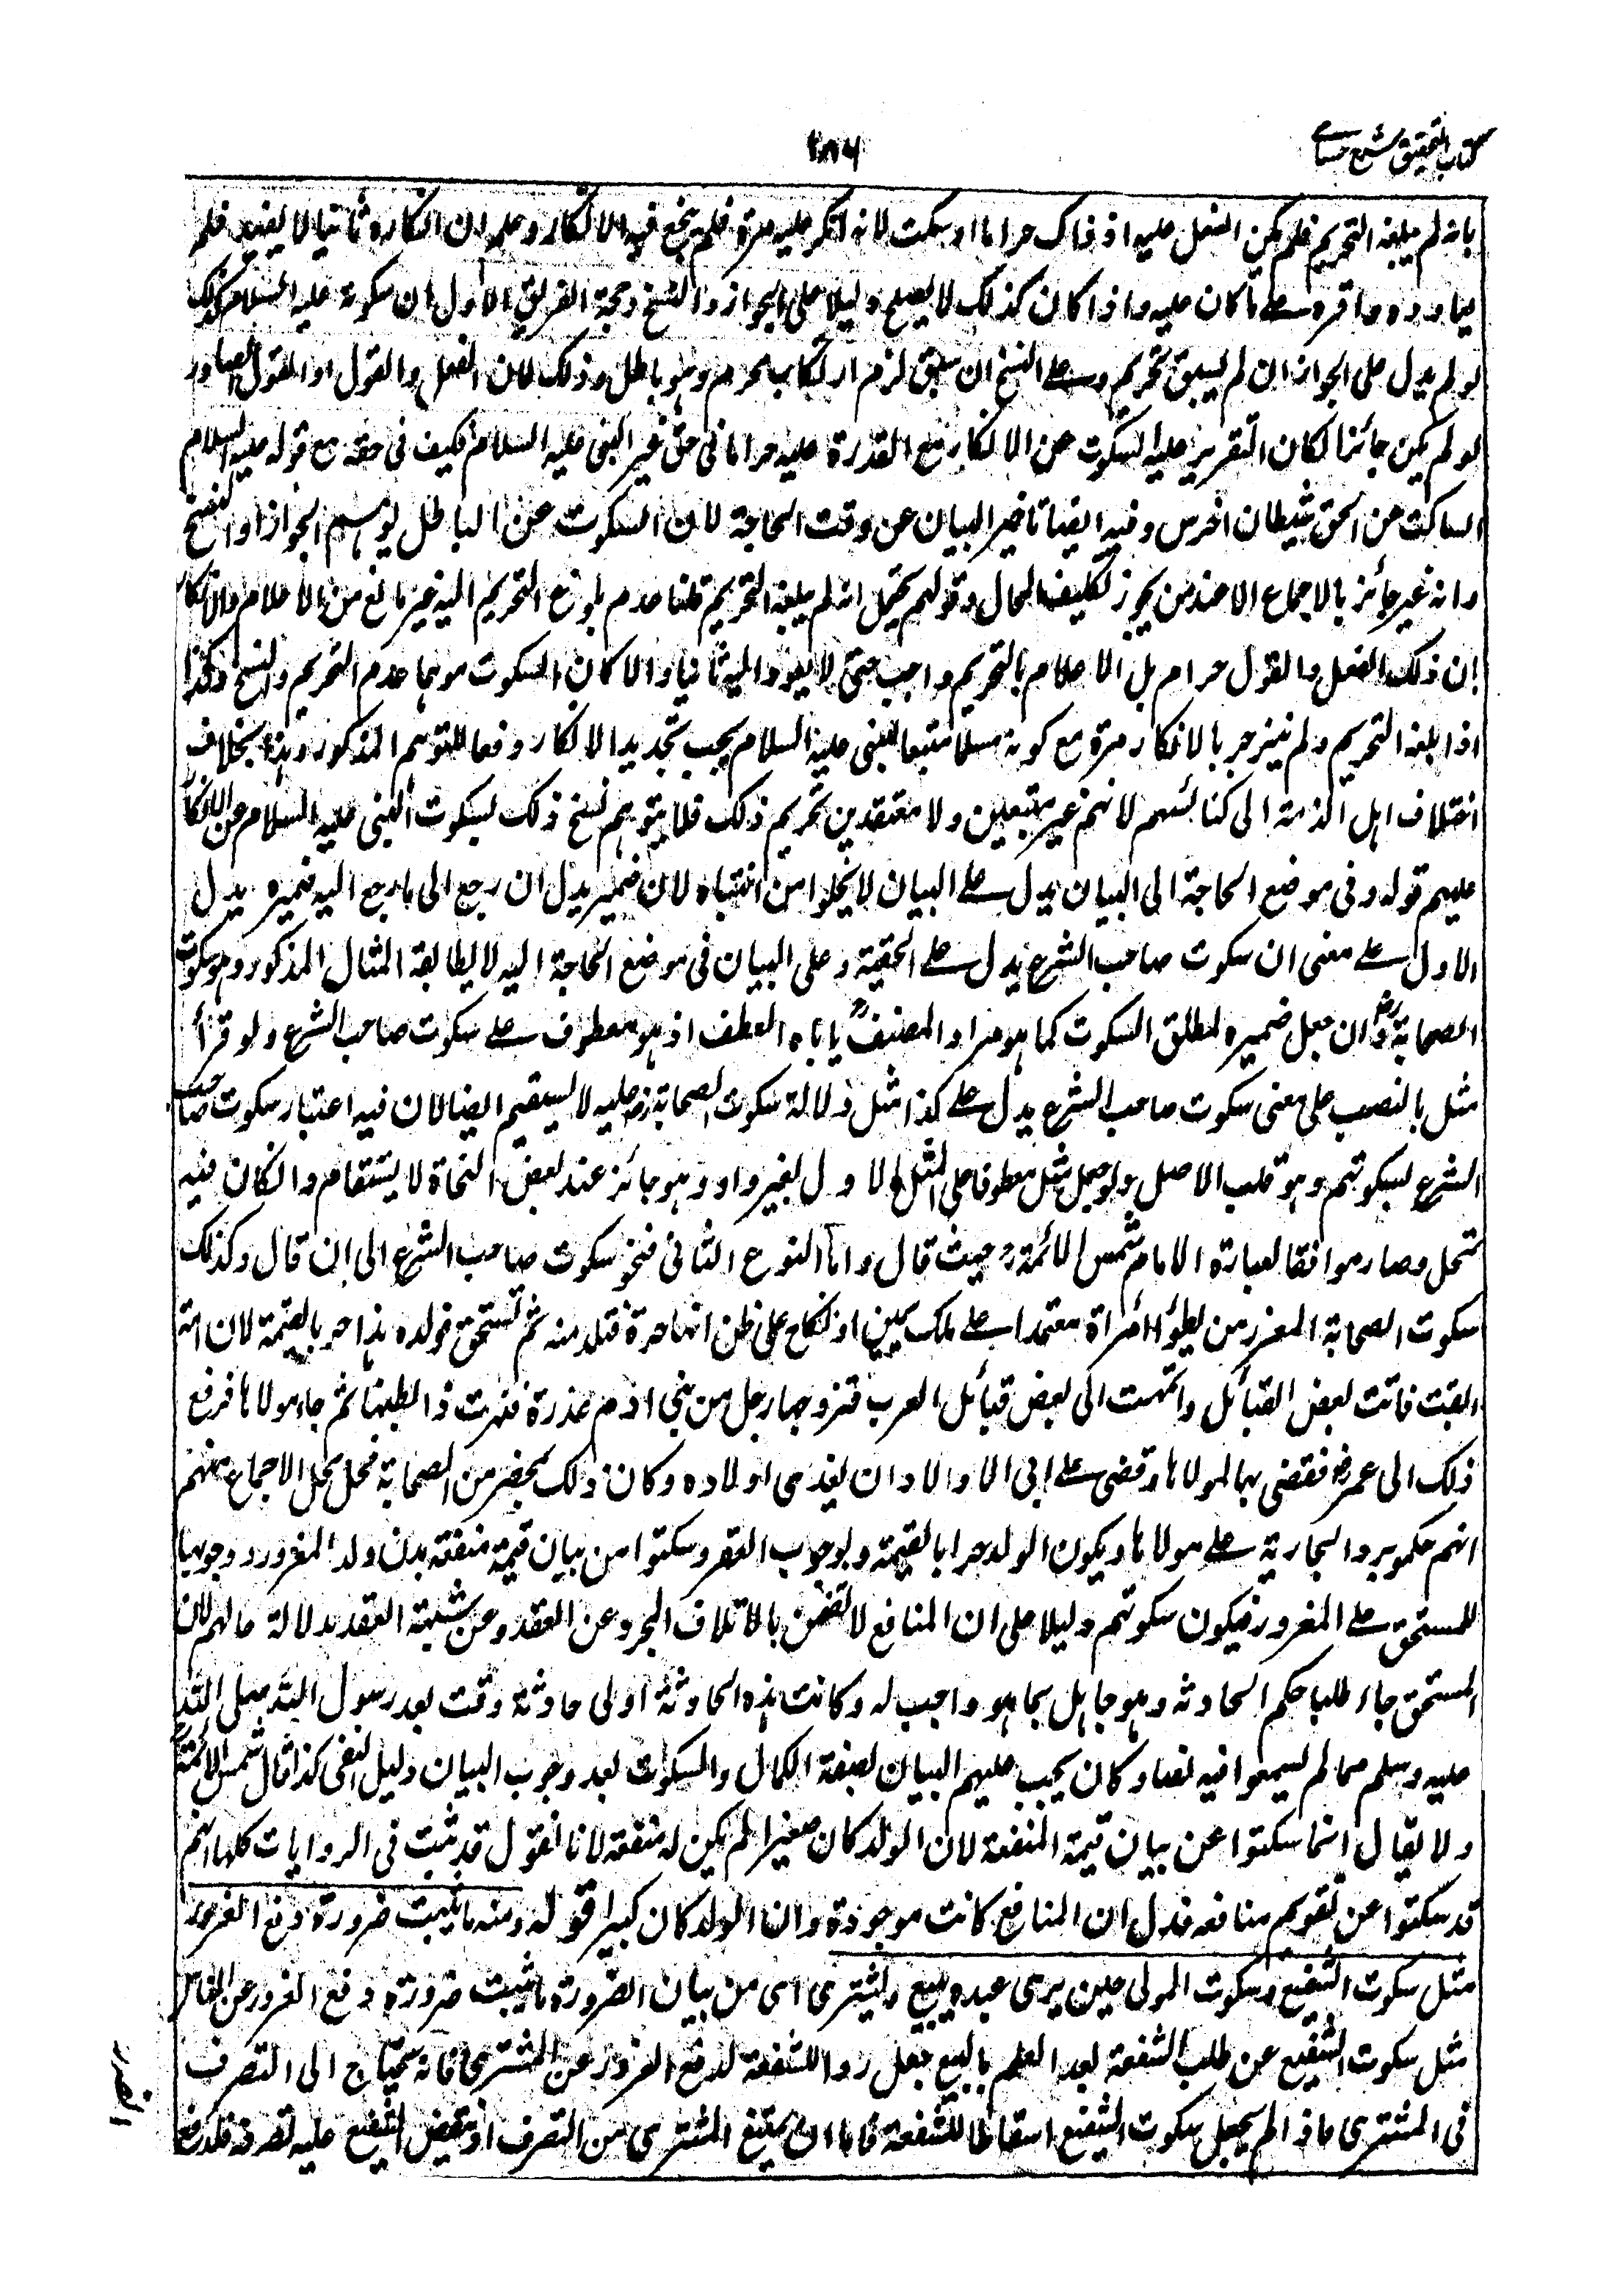 كتاب التحقيق شرح حسامى
١٨٦
بانه لم يبلغه التحريم فلم يكن الفعل عليه اذ ذاك حراما او سكت لانه انكر عليه مرة فلم ينجع فيه الانكار وعلم ان انكاره ثانيا لا يفيد فلم
يعاوده واقره على ما كان عليه واذا كان كذلك لا يصلح دليلا على الجواز والنسخ وحجة الفريق الاول ان سكوته عليه السلام كذلك
لو لم يدل على الجواز ان لم يسبق تحريم وعلى النسخ ان سبق لزم ارتكاب محرم وهو باطل وذلك لان الفعل والقول او القول الصادر
لو لم يكن جائزا لكان التقرير عليه السكوت عن الانكار مع القدرة عليه حراما فى حق غير النبى عليه السلام فكيف فى حقه مع قوله عليه السلام
الساكت عن الحق شيطان اخرس وفيه ايضا تاخير البيان عن وقت الحاجة لان السكوت عن الباطل يوهم الجواز او النسخ
وانه غير جائز بالاجماع الا عند من يجوز تكليف المحال وقولهم يحتمل انه لم يبلغه التحريم قلنا عدم بلوغ التحريم اليه غير مانع من الاعلام والانكار
ان ذلك الفعل والقول حرام بل الاعلام بالتحريم واجب حتى لا يعود اليه ثانيا والا كان السكوت موهما عدم التحريم والنسخ وكذا
اذا بلغه التحريم ولم ينزجر بالانكار مرة مع كونه مسلما متبعا للنبى عليه السلام يجب تجديد الانكار دفعا للتوهم المذكور وهذا بخلاف
اختلاف اهل الذمة الى كنائسهم لانهم غير متبعين ولا معتقدين تحريم ذلك فلا يتوهم نسخ ذلك لسكوت النبى عليه السلام عن الانكار
عليهم قوله وفى موضع الحاجة الى البيان يدل على البيان لا يخلوا من اشتباه لان ضمير يدل ان رجع الى ما رجع اليه ضميره يدل
الاول على معنى ان سكوت صاحب الشرع يدل على الحقية وعلى البيان فى موضع الحاجة اليه لا يطابقه المثال المذكور وهو سكوت
الصحابة رض وان جعل ضميره لمطلق السكوت كما هو مراد المصنف رح ياباه العطف اذ هو معطوف على سكوت صاحب الشرع ولو قرأ
مثل بالنصب على معنى سكوت صاحب الشرع يدل على كذا مثل دلالة سكوت الصحابة رض عليه لا يستقيم ايضا لان فيه اعتبار سكوت صاحب
الشرع بسكوتهم وهو قلب الاصل ولو جعل مثل معطوفا على المثل الاول بغير واو وهو جائز عند بعض النحاة لاستقام وان كان فيه
تمحل وصار موافقا لعبارة الامام شمس الائمة رح حيث قال واما النوع الثانى فنحو سكوت صاحب الشرع الى ان قال وكذلك
سكوت الصحابة المغرور من يطؤ امرأة معتمدا على ملك يمين او نكاح على ظن انها حرة فتلد منه ثم تستحق فولده هذا حر بالقيمة لان امة
ابقت فاتت بعض القبائل وانتهت الى بعض قبائل العرب فتزوجها رجل من بنى عذرة فنثرت ذا بطنها ثم جاء مولاها فرفع
ذلك الى عمر رض فقضى بها لمولاها وقضى على ابى الاولاد ان يفدى اولاده وكان ذلك بمحضر من الصحابة فحل محل الاجماع منهم
انهم حكموا برد الجارية على مولاها ويكون الولد حرا بالقيمة وبوجوب العقر وسكتوا من بيان قيمة منفعة بدن ولد المغرور ووجوبها
للمستحق على المغرور فيكون سكوتهم دليلا على ان المنافع لا تضمن بالاتلاف المجرد عن العقد وعن شبهة العقد بدلالة حالهم لان
المستحق جاء طلبا حكم الحادثه وهو جاهل بما هو واجب له وكانت هذه الحادثة اولى حادثة وقعت بعد رسول الله صلى الله
عليه وسلم مما لم يسمعوا فيه نصا وكان يجب عليهم البيان بصفة الكمال والسكوت بعد وجوب البيان دليل النفى كذا قال شمس الائمة رح
ولا يقال انما سكتوا عن بيان قيمة المنفعة لان الولد كان صغيرا لم يكن له منفعة لانا نقول قد ثبت فى الروايات كلها انهم
قد سكتوا عن تقويم منافعه فدل ان المنافع كانت موجودة وان الولد كان كبيرا قوله ومنه ما يثبت ضرورة دفع الغرور
مثل سكوت الشفيع وسكوت المولى حين يرى عبده يبيع ويشترى اى من بيان الضرورة ما يثبت ضرورة دفع الغرور عن الناس
مثل سكوت الشفيع عن طلب الشفعة بعد العلم بالبيع جعل ردا للشفعة لدفع الغرور عن المشترى فانه يحتاج الى التصرف
فى المشترى فاذا لم يجعل سكوت الشفيع اسقاطا للشفعة فاما ان يمتنع المشترى من التصرف او ينقض الشفيع عليه تصرفه فلدفع
الضرر